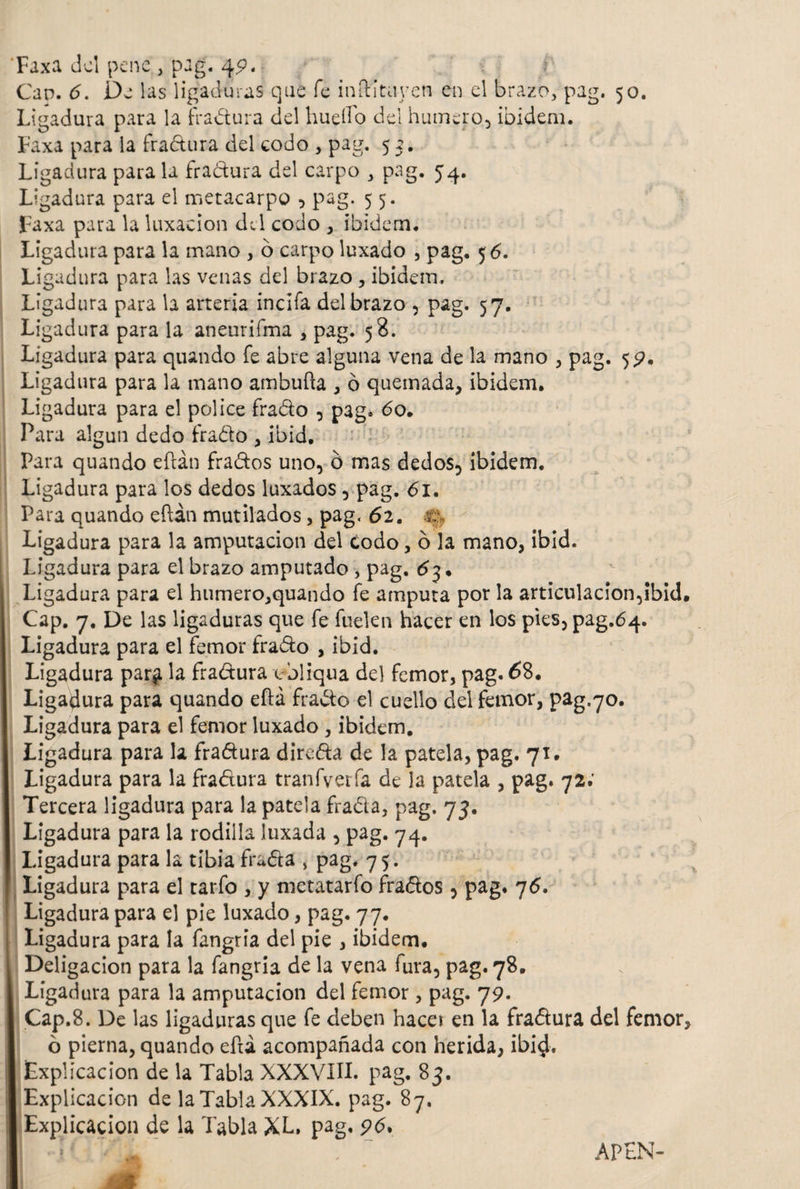 Faxa del pene , pag. 49.
Cap. 6. De las ligaduras que ſe inſtituyen en el brazo, pag. 50.
Ligadura para la fractura del hueſſo del humero, ibidem.
Faxa para la fractura del codo , pag. 53.
Ligadura para la fractura del carpo , pag. 54.
Ligadura para el metacarpo , pag. 55.
Faxa para la luxacion del codo , ibidem.
Ligadura para la mano , ò carpo luxado , pag. 56.
Ligadura para las venas del brazo , ibidem.
Ligadura para la arteria inciſa del brazo , pag. 57.
Ligadura para la aneuriſma , pag. 58.
Ligadura para quando ſe abre alguna vena de la mano , pag. 59.
Ligadura para la mano ambuſta , ò quemada, ibidem.
Ligadura para el police fracto , pag. 60.
Para algun dedo fracto , ibid.
Para quando eſtàn fractos uno, ò mas dedos, ibidem.
Ligadura para los dedos luxados , pag. 61.
Para quando eſtàn mutilados , pag. 62.
Ligadura para la amputacion del codo , ò la mano, ibid.
Ligadura para el brazo amputado , pag. 63.
Ligadura para el humero,quando ſe amputa por la articulacion,ibid.
Cap. 7. De las ligaduras que ſe ſuelen hacer en los pies, pag.64.
Ligadura para el femor fracto , ibid.
Ligadura para la fractura obliqua del femor, pag. 68.
Ligadura para quando eſtà fracto el cuello del femor, pag.70.
Ligadura para el femor luxado , ibidem.
Ligadura para la fractura directa de la patela, pag. 71.
Ligadura para la fractura tranſverſa de la patela , pag. 72.
Tercera ligadura para la patela fracta, pag. 73.
Ligadura para la rodilla luxada , pag. 74.
Ligadura para la tibia fracta , pag. 75.
Ligadura para el tarſo , y metatarſo fractos , pag. 76.
Ligadura para el pie luxado , pag. 77.
Ligadura para la ſangria del pie , ibidem.
Deligacion para la ſangria de la vena ſura, pag. 78.
Ligadura para la amputacion del femor , pag. 79.
Cap.8. De las ligaduras que ſe deben hacer en la fractura del femor,
ò pierna, quando eſtà acompañada con herida, ibid.
Explicacion de la Tabla XXXVIII. pag. 83.
Explicacion de la Tabla XXXIX. pag. 87.
Explicacion de la Tabla XL. pag. 96.
APEN-